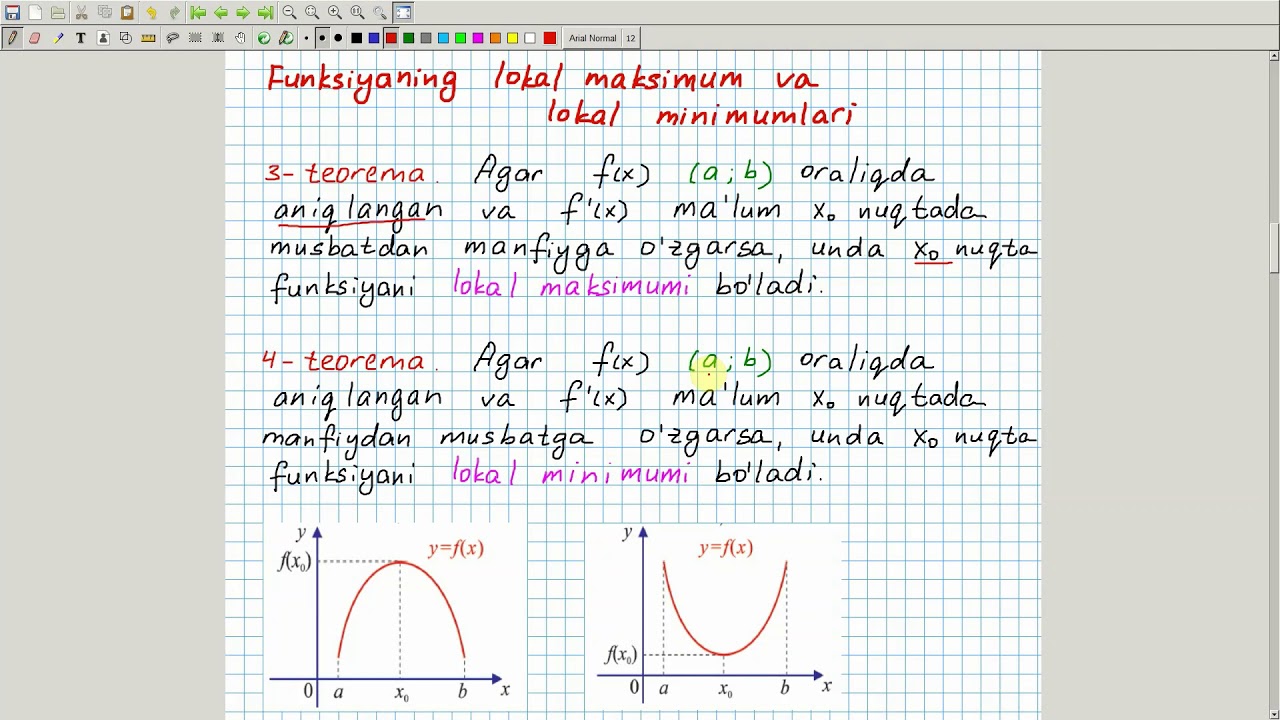 Arial Normal 12
Funksiyaning lokal maksimum va
lokal minimumlari
3- teorema. Agar f(x) (a ; b) oraliqda
aniqlangan va f'(x) ma'lum x₀ nuqtada
musbatdan manfiyga o'zgarsa, unda x₀ nuqta
funksiyani lokal maksimumi bo'ladi.
4- teorema. Agar f(x) (a ; b) oraliqda
aniqlangan va f'(x) ma'lum x₀ nuqtada
manfiydan musbatga o'zgarsa, unda x₀ nuqta
funksiyani lokal minimumi bo'ladi.
y
y=f(x)
f(x₀)
0 a x₀ b x
y
y=f(x)
f(x₀)
0 a x₀ b x